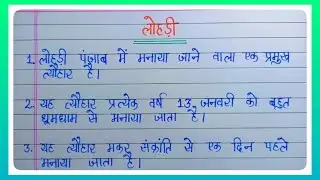 लोहड़ी
1. लोहड़ी पंजाब में मनाया जाने वाला एक प्रमुख
त्यौहार है।
2. यह त्यौहार प्रत्येक वर्ष 13 जनवरी को बहुत
धूमधाम से मनाया जाता है।
3. यह त्यौहार मकर संक्रांति से एक दिन पहले
मनाया जाता है।